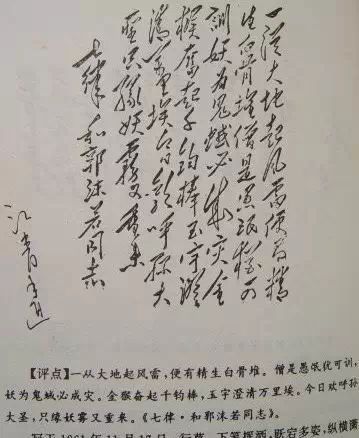 一从大地起风雷便有精
生白骨堆僧是愚氓犹可
训妖为鬼蜮必成灾金
猴奋起千钧棒玉宇澄
清万里埃今日欢呼孙大
圣只缘妖雾又重来
七律 和郭沫若同志
【评点】一从大地起风雷，便有精生白骨堆。僧是愚氓犹可训，
妖为鬼蜮必成灾。金猴奋起千钧棒，玉宇澄清万里埃。今日欢呼孙
大圣，只缘妖雾又重来。《七律·和郭沫若同志》。
写于1961年11月17日。行草。下笔挥洒，跃宕多姿，纵横